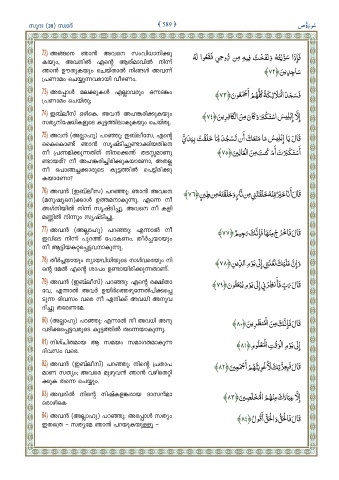 സൂറ (38) സ്വാദ്
﴾ 589 ﴿
سورة ص
72) അങ്ങനെ ഞാൻ അവനെ സംവിധാനിക്കു
കയും, അവനിൽ എന്റെ ആത്മാവിൽ നിന്ന്
ഞാൻ ഊതുകയും ചെയ്താൽ നിങ്ങൾ അവന്ന്
പ്രണാമം ചെയ്യുന്നവരായി വീഴണം.
فَإِذَا سَوَّيْتُهُ وَنَفَخْتُ فِيهِ مِن رُّوحِي فَقَعُوا لَهُ
سَاجِدِينَ ﴿٧٢﴾
73) അപ്പോൾ മലക്കുകൾ എല്ലാവരും ഒന്നടങ്കം
പ്രണാമം ചെയ്തു;
فَسَجَدَ الْمَلَائِكَةُ كُلُّهُمْ أَجْمَعُونَ ﴿٧٣﴾
74) ഇബ്‌ലീസ് ഒഴികെ. അവൻ അഹങ്കരിക്കുകയും
സത്യനിഷേധികളുടെ കൂട്ടത്തിലാകുകയും ചെയ്തു.
إِلَّا إِبْلِيسَ اسْتَكْبَرَ وَكَانَ مِنَ الْكَافِرِينَ ﴿٧٤﴾
75) അവൻ (അല്ലാഹു) പറഞ്ഞു: ഇബ്‌ലീസേ, എന്റെ
കൈകൊണ്ട് ഞാൻ സൃഷ്ടിച്ചുണ്ടാക്കിയതിനെ
നീ പ്രണമിക്കുന്നതിന് നിനക്കെന്ത് തടസ്സമാണു
ണ്ടായത്? നീ അഹങ്കരിച്ചിരിക്കുകയാണോ, അതല്ല
നീ പൊങ്ങച്ചക്കാരുടെ കൂട്ടത്തിൽ പെട്ടിരിക്കു
കയാണോ?
قَالَ يَا إِبْلِيسُ مَا مَنَعَكَ أَن تَسْجُدَ لِمَا خَلَقْتُ بِيَدَيَّ
أَسْتَكْبَرْتَ أَمْ كُنتَ مِنَ الْعَالِينَ ﴿٧٥﴾
76) അവൻ (ഇബ്‌ലീസ്) പറഞ്ഞു: ഞാൻ അവനെ
(മനുഷ്യനെ)ക്കാൾ ഉത്തമനാകുന്നു. എന്നെ നീ
അഗ്നിയിൽ നിന്ന് സൃഷ്ടിച്ചു. അവനെ നീ കളി
മണ്ണിൽ നിന്നും സൃഷ്ടിച്ചു.
قَالَ أَنَا خَيْرٌ مِّنْهُ خَلَقْتَنِي مِن نَّارٍ وَخَلَقْتَهُ مِن طِينٍ ﴿٧٦﴾
77) അവൻ (അല്ലാഹു) പറഞ്ഞു: എന്നാൽ നീ
ഇവിടെ നിന്ന് പുറത്ത് പോകണം. തീർച്ചയായും
നീ ആട്ടിയകറ്റപ്പെട്ടവനാകുന്നു.
قَالَ فَاخْرُجْ مِنْهَا فَإِنَّكَ رَجِيمٌ ﴿٧٧﴾
78) തീർച്ചയായും ന്യായവിധിയുടെ നാൾവരെയും നി
ന്റെ മേൽ എന്റെ ശാപം ഉണ്ടായിരിക്കുന്നതാണ്.
وَإِنَّ عَلَيْكَ لَعْنَتِي إِلَىٰ يَوْمِ الدِّينِ ﴿٧٨﴾
79) അവൻ (ഇബ്‌ലീസ്) പറഞ്ഞു: എന്റെ രക്ഷിതാ
വേ, എന്നാൽ അവർ ഉയിർത്തെഴുന്നേൽപിക്കപ്പെ
ടുന്ന ദിവസം വരെ നീ എനിക്ക് അവധി അനുവ
ദിച്ചു തരേണമേ.
قَالَ رَبِّ فَأَنظِرْنِي إِلَىٰ يَوْمِ يُبْعَثُونَ ﴿٧٩﴾
80) (അല്ലാഹു) പറഞ്ഞു: എന്നാൽ നീ അവധി അനു
വദിക്കപ്പെട്ടവരുടെ കൂട്ടത്തിൽ തന്നെയാകുന്നു.
قَالَ فَإِنَّكَ مِنَ الْمُنظَرِينَ ﴿٨٠﴾
81) നിശ്ചിതമായ ആ സമയം സമാഗതമാകുന്ന
ദിവസം വരെ.
إِلَىٰ يَوْمِ الْوَقْتِ الْمَعْلُومِ ﴿٨١﴾
82) അവൻ (ഇബ്‌ലീസ്) പറഞ്ഞു: നിന്റെ പ്രതാപ
മാണ സത്യം; അവരെ മുഴുവൻ ഞാൻ വഴിതെറ്റി
ക്കുക തന്നെ ചെയ്യും.
قَالَ فَبِعِزَّتِكَ لَأُغْوِيَنَّهُمْ أَجْمَعِينَ ﴿٨٢﴾
83) അവരിൽ നിന്റെ നിഷ്കളങ്കരായ ദാസൻമാ
രൊഴികെ
إِلَّا عِبَادَكَ مِنْهُمُ الْمُخْلَصِينَ ﴿٨٣﴾
84) അവൻ (അല്ലാഹു) പറഞ്ഞു: അപ്പോൾ സത്യം
ഇതത്രെ - സത്യമേ ഞാൻ പറയുകയുള്ളൂ -
قَالَ فَالْحَقُّ وَالْحَقَّ أَقُولُ ﴿٨٤﴾